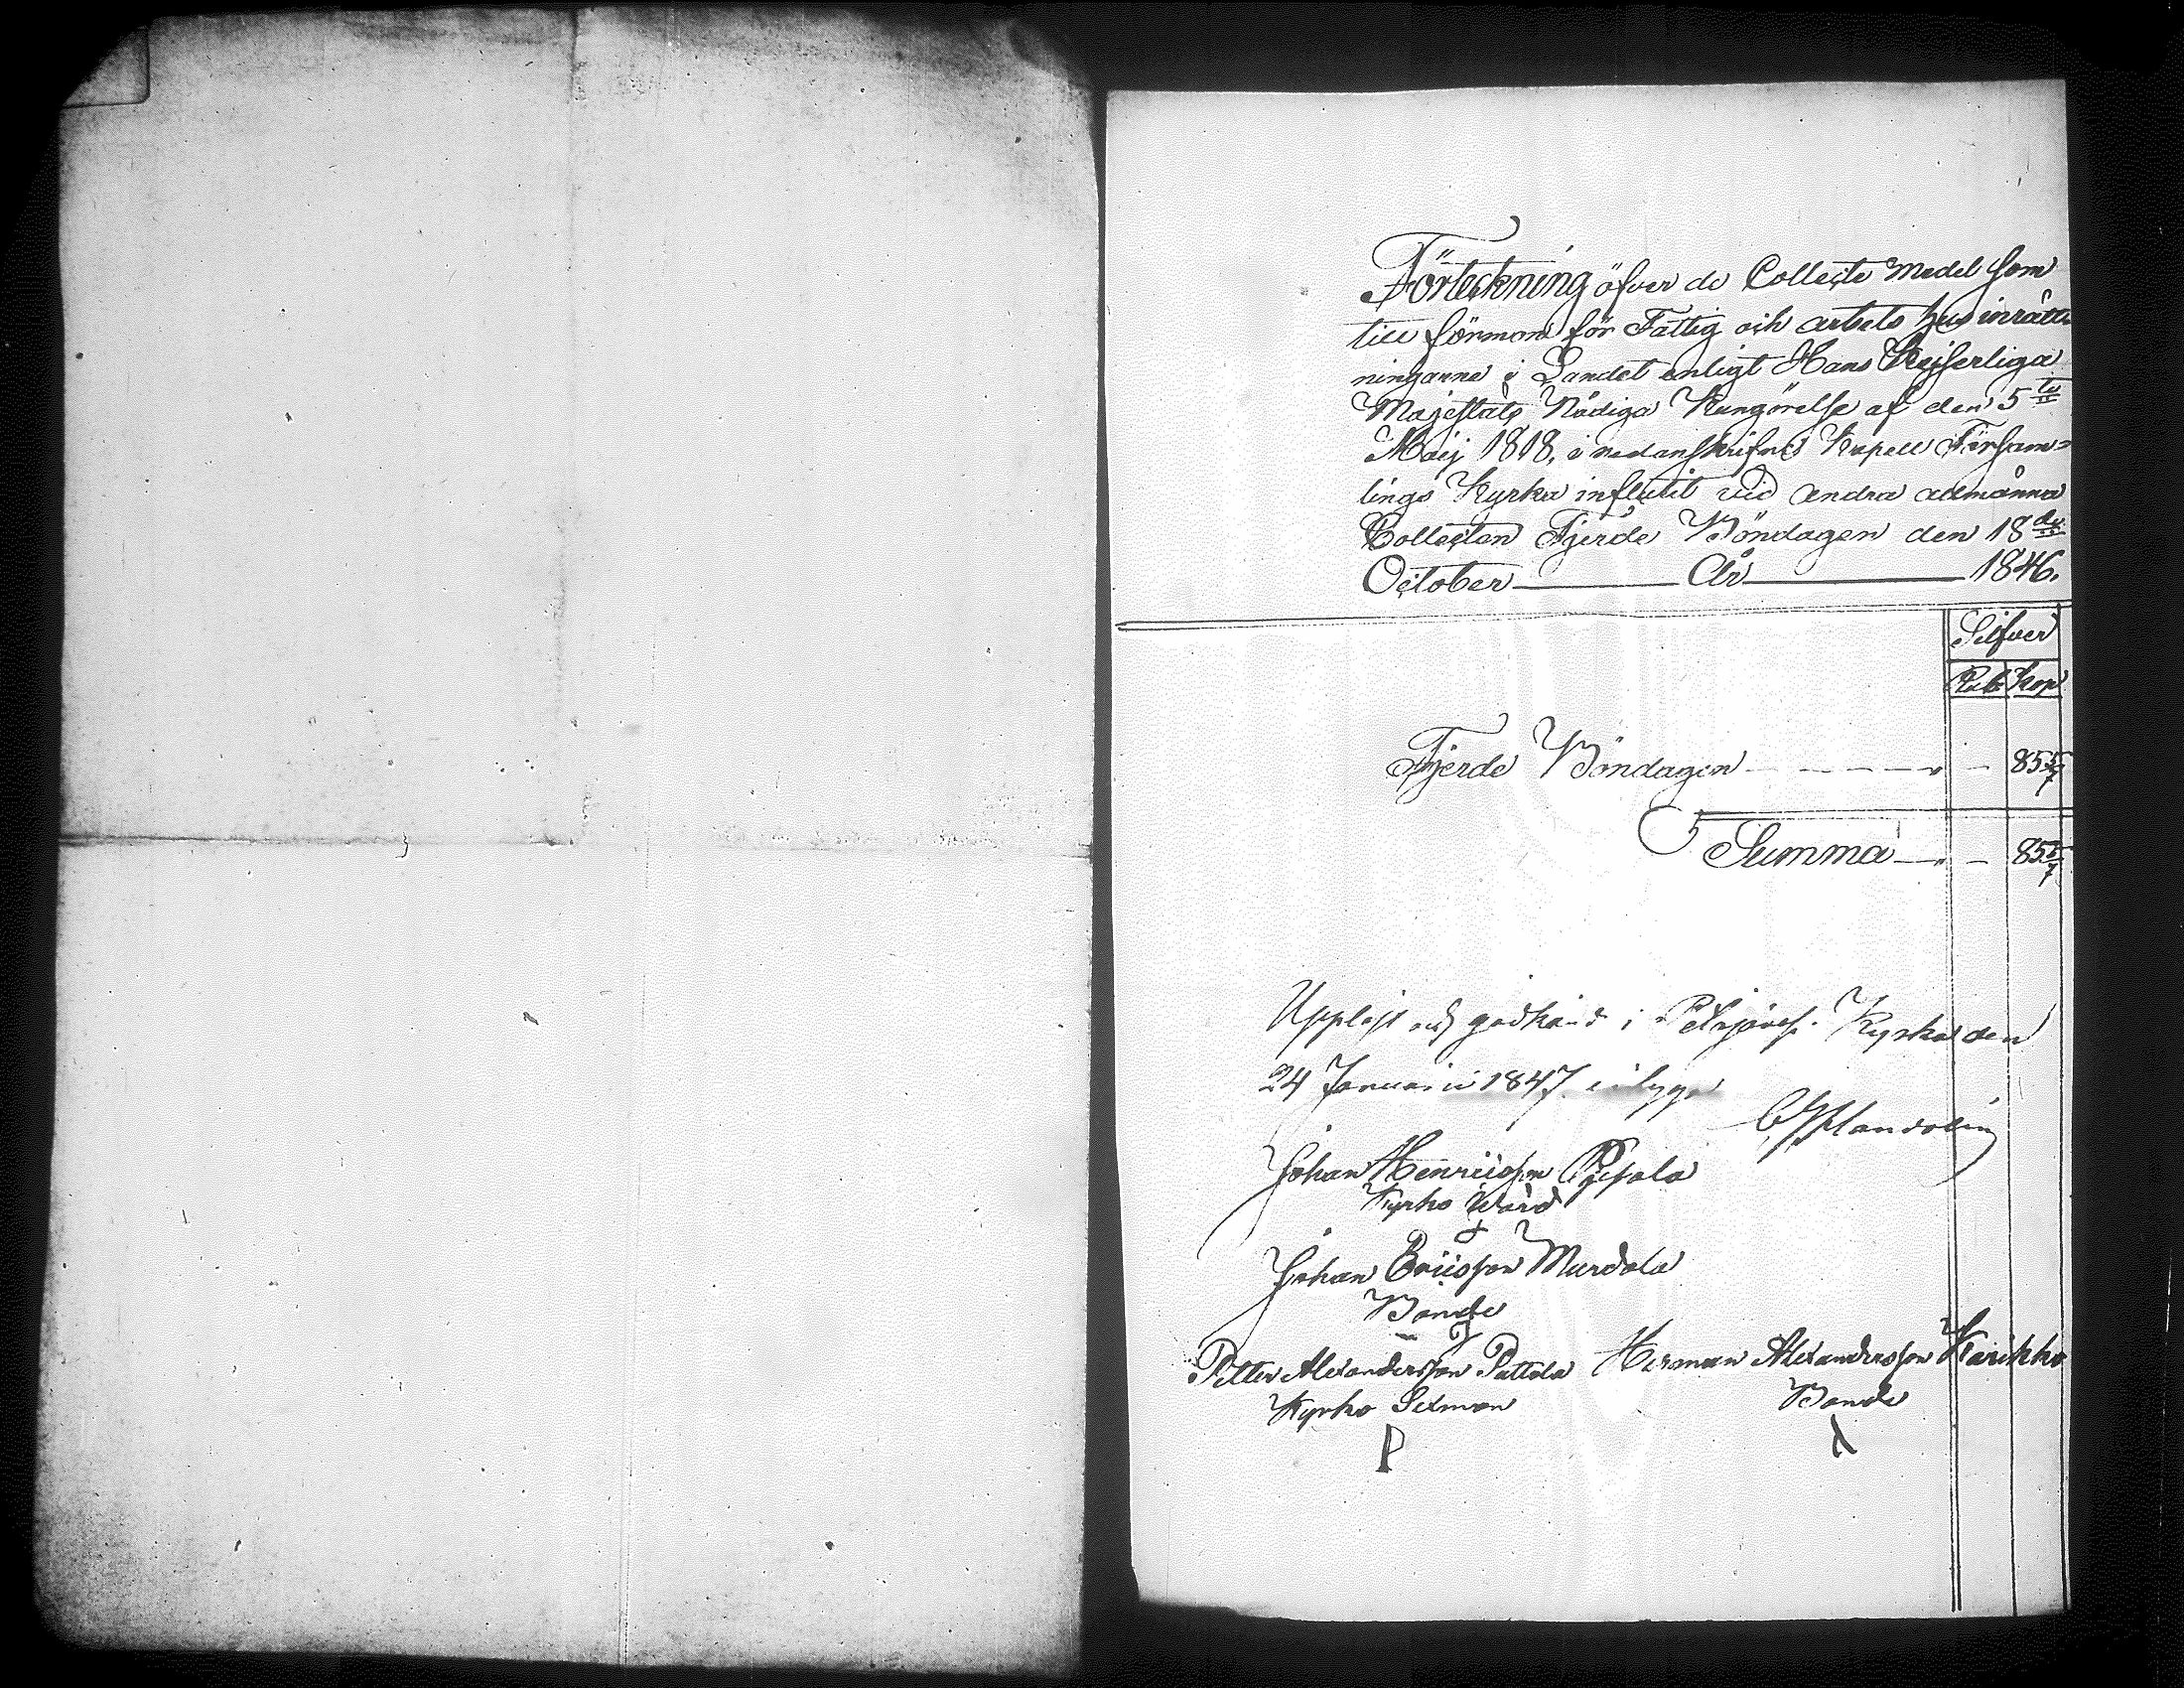 Förteckning öfver de Collecte medel som
till förmon för Fattig och arbets hus inrätt-
ningarne i Landet enligt Hans Kejserliga
Majestäts Nådiga Kungörelse af den 5te
Maij 1818, i nedanskrifne Kapell Försam=
lings Kyrka influtit vid andra allmänna
Collecten Fjerde Böndagen den 18de
October År 1846.
Silfver
Rub Kop
Fjerde Böndagen " - 85 5/7
Summa " - 85 5/7
Uppläst och godkänd i Petäjäves. Kyrka den
24 Januarii 1847 intygga
Johan Henricsson
Kyrko Värd
Johan Ericsson Murdola
Bonde
Petter Alexandersson Pattala Herman Alexandersson Karikko
Kyrko Sexman Bonde
P